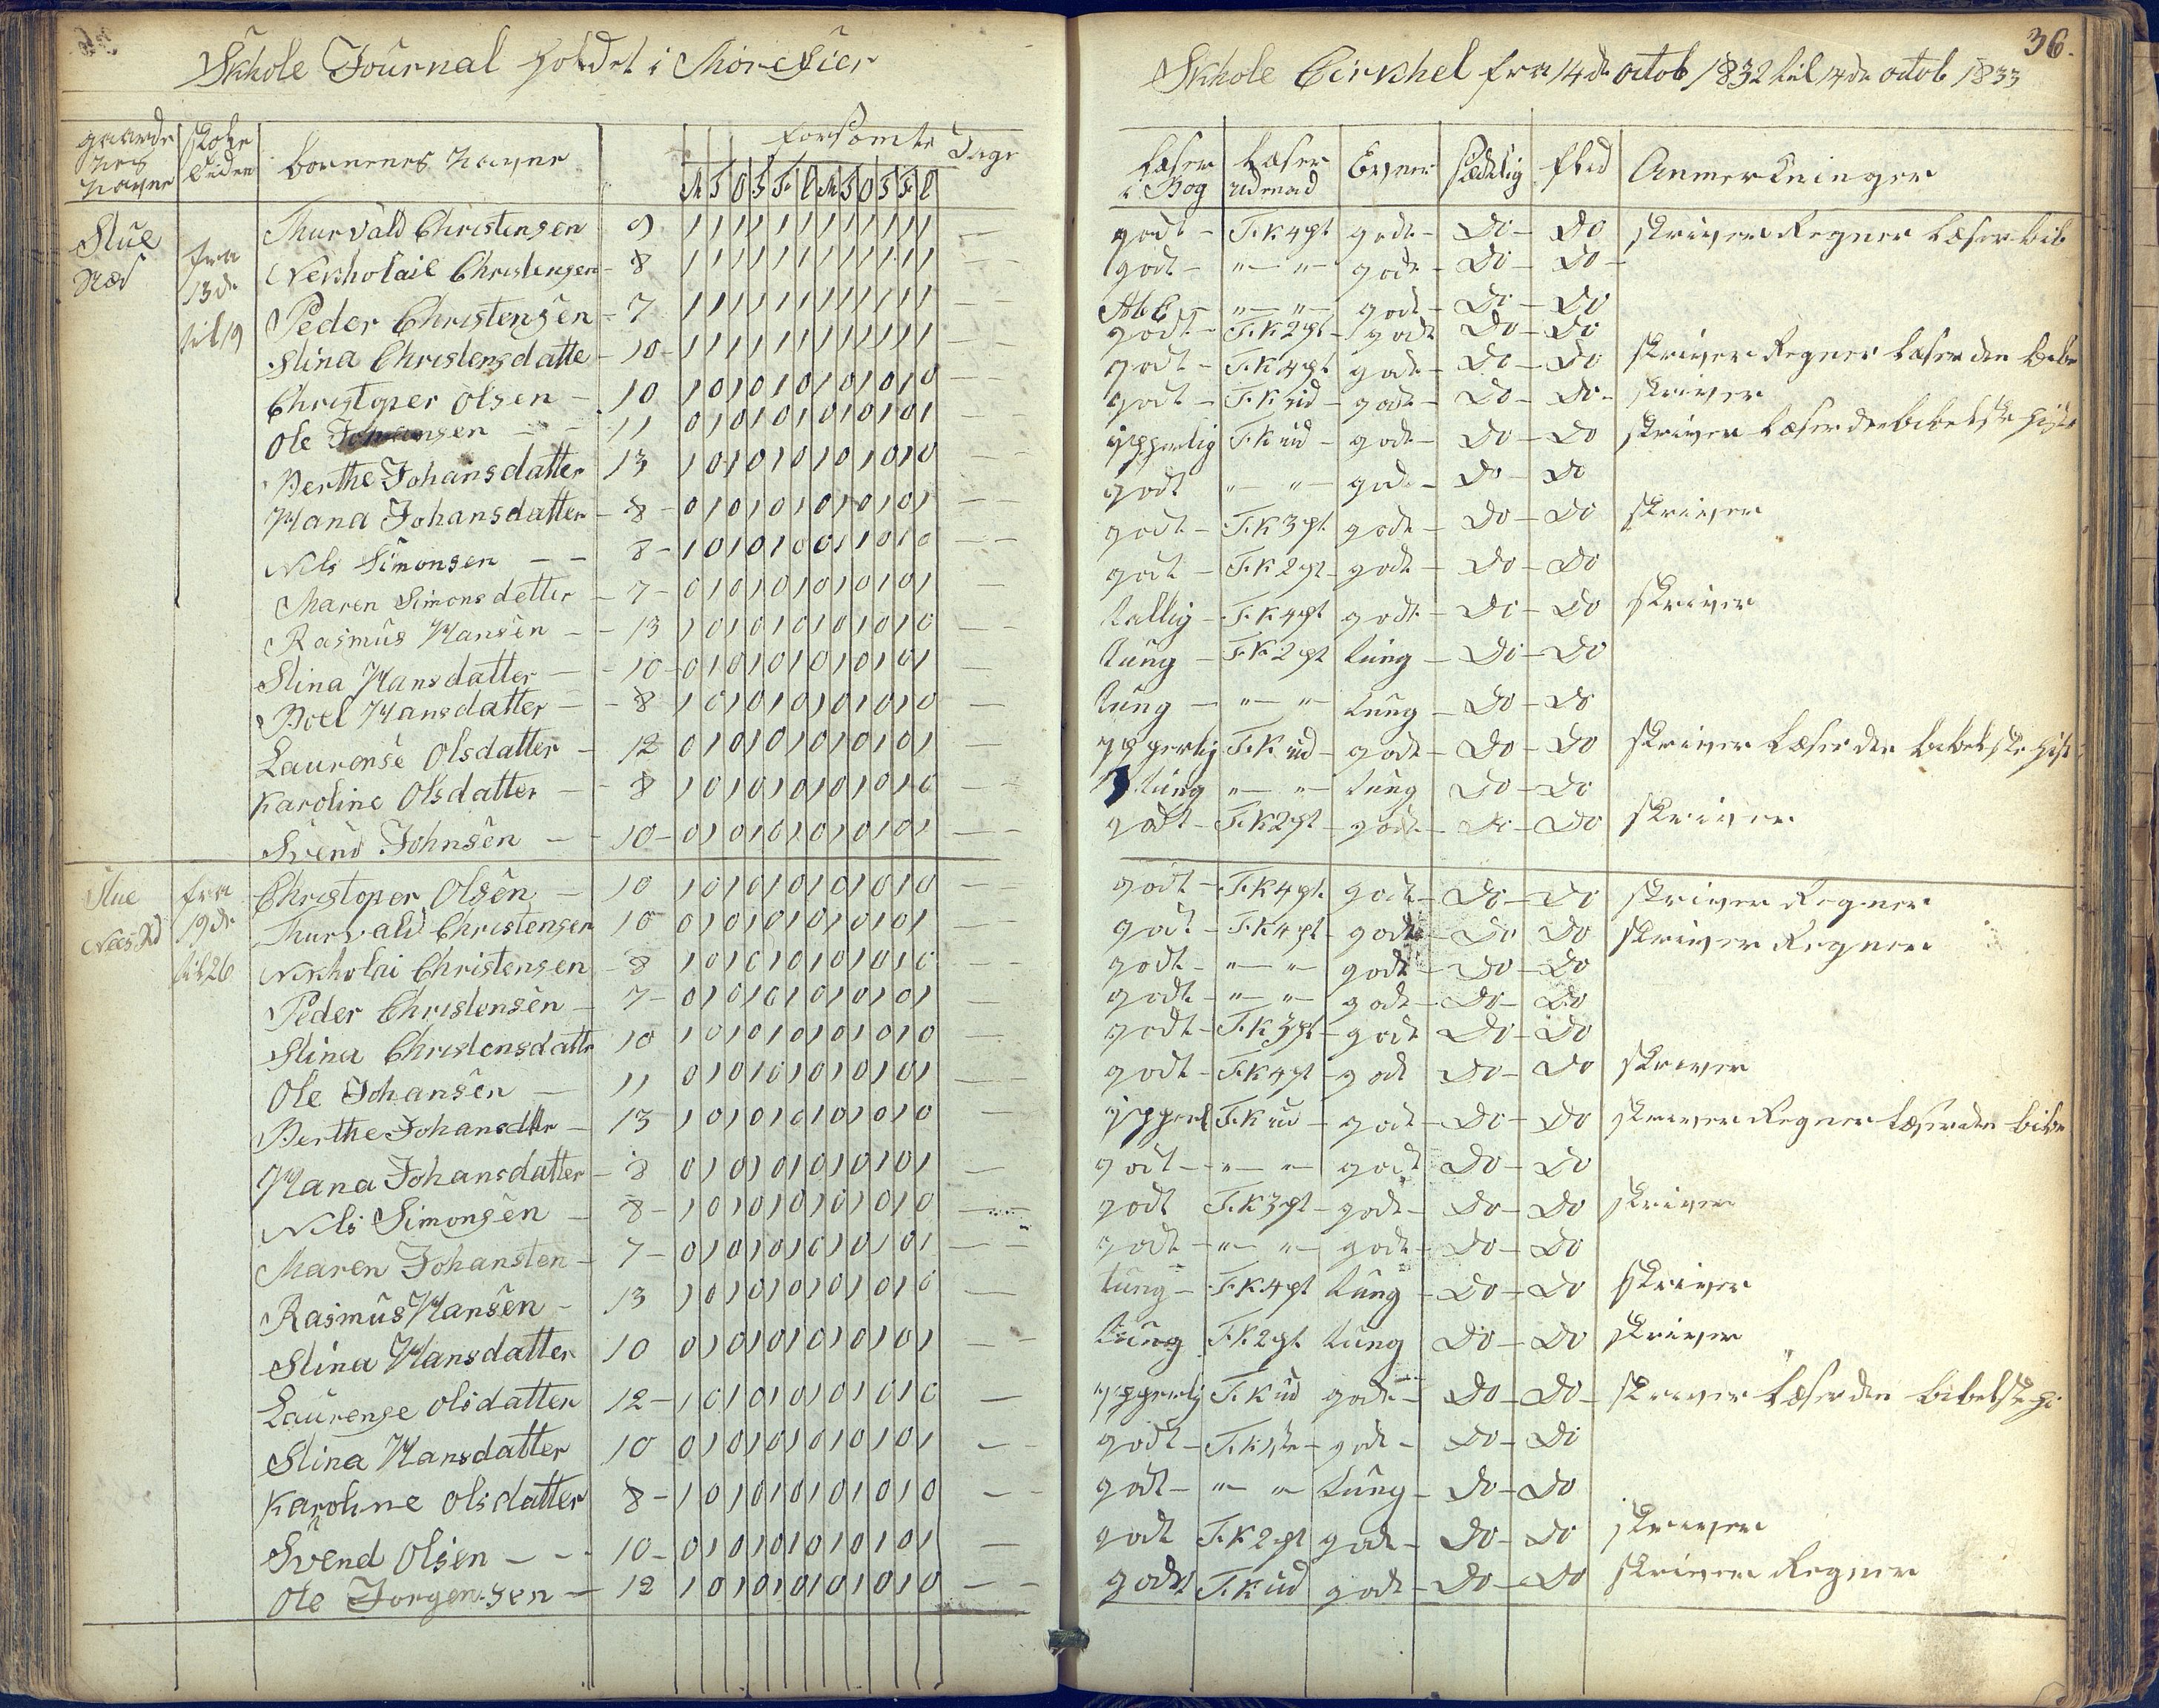 36.
Skhole Journal holdet i Morefier Skhole Cirkhel fra 14de octob 1832 til 14de octob 1833
gaarde nes navne | skole tiden | börnenes navne | forsömte Dage
M T O T F L M T O T F L
læser i Bog | læser udenad | Evner | sædelig | flid | Anmerkninger
Stue Næs fra 13de til 19
Thurvald Christensen 9 1 1 1 1 1 1 1 1 1 1 1 1 — godt - T.K 4 pt godt - Do - Do skriver Regner læser bib
Nekholail Christensen 8 1 1 1 1 1 1 1 1 1 1 1 1 — godt - " — " — godt - Do - Do -
Peder Christensen - 7 1 1 1 1 1 1 1 1 1 1 1 1 — AbC - " — " — godt - Do - Do
Stina Christensdatte - 10 - 1 1 1 1 1 1 1 1 1 1 1 1 — godt - T.K 2 pt - godt Do - Do
Christoper Olsen - 10 1 0 1 0 1 0 1 0 1 0 1 0 — godt - T.K 4 pt godt - Do - Do skriver Regner læser den bibe
Ole Johansen — 11 0 1 0 1 0 1 0 1 0 1 0 1 — godt - T.K ud - godt - Do - Do - skriver
Berthe Johansdatter 13 1 0 1 0 1 0 1 0 1 0 1 0 — ypperlig T.K ud - godt - Do - Do skriver læser den bibelske hist
Hana Johansdatter - 8 - 0 1 0 1 0 1 0 1 0 1 0 1 — godt " — " — godt - Do - Do
Nils Simonsen — — 8 - 1 0 1 0 1 0 0 1 1 0 1 0 — godt - T.K 3 pt godt - Do - Do skriver
Maren Simonsdetter - 7 - 0 1 0 1 0 1 0 1 0 1 0 1 — godt - T.K 2 pt - godt - Do - Do
Rasmus Hansen - - 13 1 0 1 0 1 0 1 0 1 0 1 0 — T.K 4 pt godt - Do - Do skriver
Stina Hansdatter - - 10 - 0 1 0 1 0 1 0 1 0 1 0 1 — tung - T.K 2 pt tung - Do - Do
Boel Hansdatter - - 8 1 0 1 0 1 0 1 0 1 0 1 0 — tung - " — " tung - Do - Do
Laurense Olsdatter - 12 0 1 0 1 0 1 0 1 0 1 0 1 — ypperlig T.K ud - godt - Do - Do skriver læser den bibelske hist
Karoline Olsdatter - - 8 1 0 1 0 1 0 1 0 1 0 1 0 — tung " — " - tung Do - Do
Svend Johnsen - - 10 - 0 1 0 1 0 1 0 1 0 1 0 1 — godt - T.K 2 pt - godt - Do - Do skriver
Stue Næs fra 19de til 26
Christoper Olsen - 10 1 0 1 0 1 0 1 0 1 0 1 0 — godt - T.K 4 pt godt - Do - Do skriver Regner
Thurvald Christensen 10 0 1 0 1 0 1 0 1 0 1 0 1 — godt - T.K 4 pt - godt - Do Do skriver Regner
Nikholai Christensen - 8 1 0 1 0 1 0 1 0 1 0 1 0 — godt - " — " godt - Do - Do
Peder Christensen - 7 - 0 1 0 1 0 1 0 1 0 1 0 1 — godt - " — " godt - Do - Do
Stina Christensdattr 10 1 0 1 0 1 0 1 0 1 0 1 0 — godt - T.K 3 pt - godt Do - Do
Ole Johansen — 11 0 1 0 1 0 1 0 1 0 1 0 1 — godt - T.K 4 pt - godt Do - Do skriver
Berthe Johansdttr - 13 1 0 1 0 1 0 1 0 1 0 1 0 — ypperl T.K ud - godt - Do - Do skriver Regner læser den bibe
Hana Johansdatter - 8 0 1 0 1 0 1 0 1 0 1 0 1 — godt - " — " godt Do - Do
Nils Simongen - 8 - 1 0 1 0 1 0 1 0 1 0 1 0 — godt T.K 3 pt - godt - Do - Do skriver
Maren Johansten - 7 - 0 1 0 1 0 1 0 1 0 1 0 1 — godt - " — " godt - Do - Do
Rasmus Hansen - 13 1 0 1 0 1 0 1 0 1 0 1 0 — tung - T.K 4 pt tung - Do - Do skriver
Stina Hansdatter 10 0 1 0 1 0 1 0 1 0 1 0 1 — tung T.K 2 pt tung Do - Do skriver
Laurense Olsdatter 12 - 1 0 1 0 1 0 1 0 1 0 1 0 — ypperlig T.K ud godt - Do - Do - skriver læser den bibelske hi
Stina Hansdatter 10 0 1 0 1 0 1 0 1 0 1 0 1 — godt - godt - Do - Do
Karoline Olsdatter 8 - 1 0 1 0 1 0 1 0 1 0 1 0 — godt - " — " tung - Do - Do
Svend Olsen - - - 10 - 0 1 0 1 0 1 0 1 0 1 0 1 — godt T.K 2 pt godt - Do - Do skriver
Ole Jorgensen - 12 1 0 1 0 1 0 1 0 1 0 1 0 — godt T.K ud godt - Do - Do skriver Regner